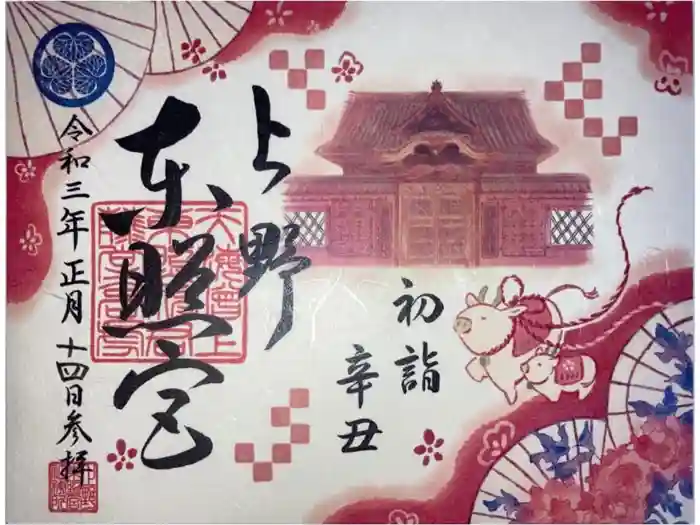 初詣
辛丑
上野
東照宮
令和三年正月十四日参拝